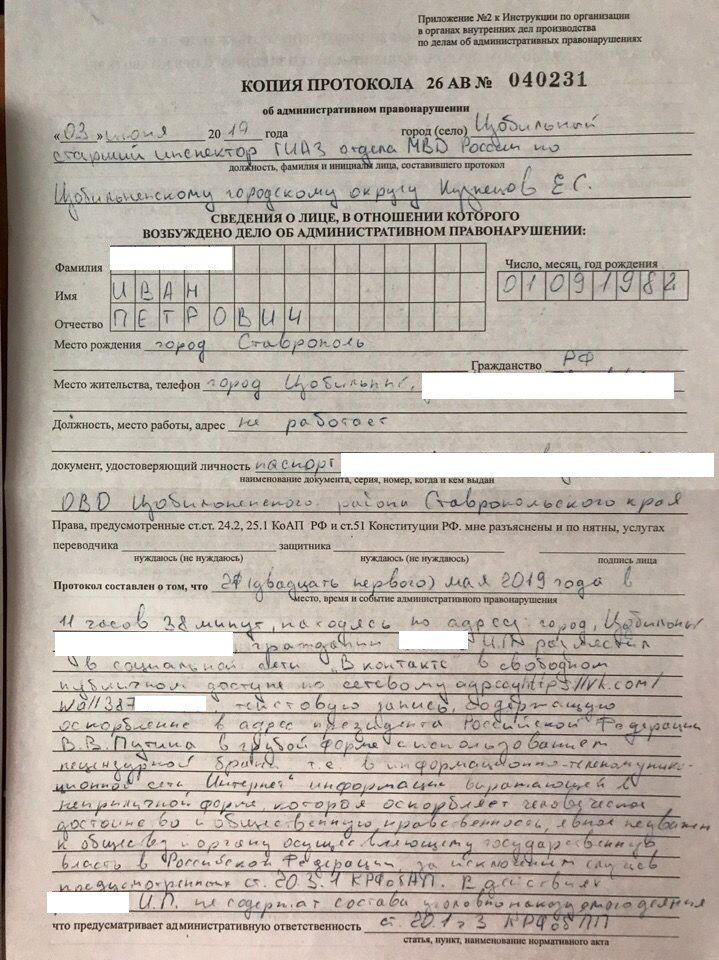 Приложение №2 к Инструкции по организации
в органах внутренних дел производства
по делам об административных правонарушениях
КОПИЯ ПРОТОКОЛА 26 АВ № 040231
об административном правонарушении
«03» июня 2019 года город (село) Изобильный
старший инспектор ГИАЗ отдела МВД России по
должность, фамилия и инициалы лица, составившего протокол
Изобильненскому городскому округу Кузнецов Е.С.
СВЕДЕНИЯ О ЛИЦЕ, В ОТНОШЕНИИ КОТОРОГО
ВОЗБУЖДЕНО ДЕЛО ОБ АДМИНИСТРАТИВНОМ ПРАВОНАРУШЕНИИ:
Фамилия
Число, месяц, год рождения
Имя ИВАН 01091982
Отчество ПЕТРОВИЧ
Место рождения город Ставрополь
Гражданство РФ
Место жительства, телефон город Изобильный,
Должность, место работы, адрес не работает
документ, удостоверяющий личность паспорт
наименование документа, серия, номер, когда и кем выдан
ОВД Изобильненского района Ставропольского края
Права, предусмотренные ст.ст. 24.2, 25.1 КоАП РФ и ст.51 Конституции РФ. мне разъяснены и по нятны, услугах
переводчика защитника
нуждаюсь (не нуждаюсь) нуждаюсь (не нуждаюсь) подпись лица
Протокол составлен о том, что 21 (двадцать первого) мая 2019 года в
место, время и событие административного правонарушения
11 часов 38 минут, находясь по адресу город, Изобильный
гражданин И.П. разместил
в социальной сети "В контакте" в свободном
публичном доступе по сетевому адресу https://vk.com/
387 текстовую запись, содержащую
оскорбление в адрес президента Российской Федерации
В.В. Путина в грубой форме с использованием
нецензурной брани т.е. в информационно-телекоммуника-
ционной сети "Интернет" информации выражающей в
неприличной форме, которая оскорбляет человеческое
достоинство и общественную нравственность, явное неуважен
к обществу и органу осуществляющему государственную
власть в Российской Федерации, за исключением случаев
предусмотренных ст. 20.3.1 КРФобАП. В действиях
И.П. не содержат состава уголовно наказуемого деяния
что предусматривает административную ответственность ст. 20.1 ч 3 КРФобАП
статья, пункт, наименование нормативного акта